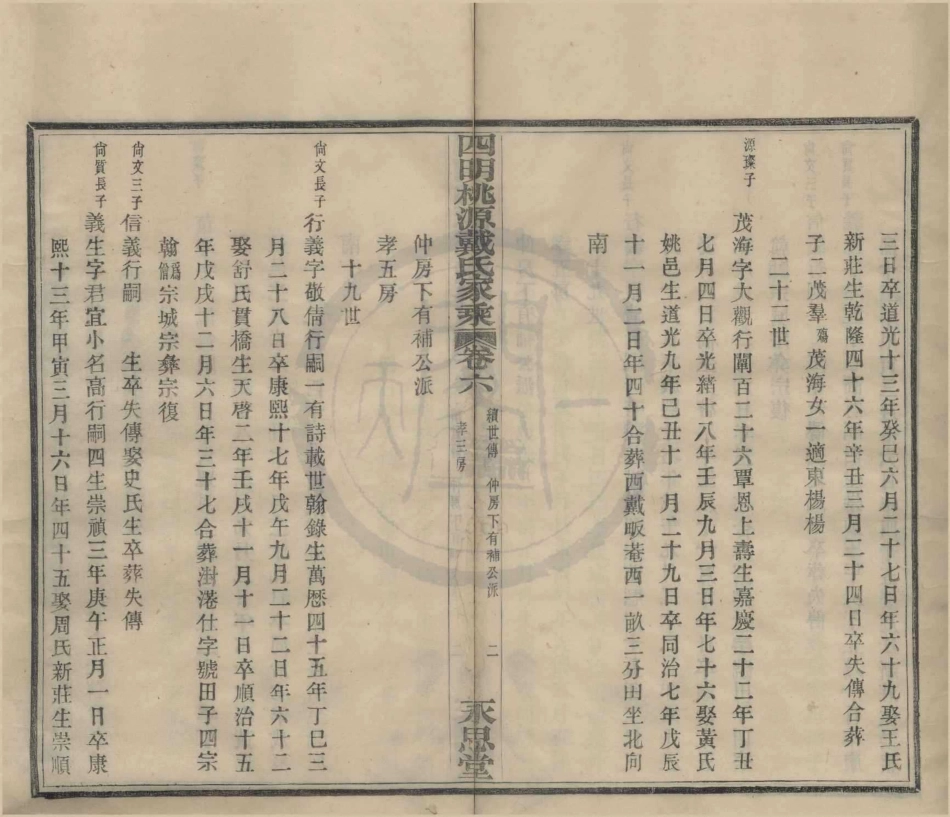 三日卒道光十三年癸巳六月二十七日年六十九娶王氏
新莊生乾隆四十六年辛丑三月二十四日卒失傳合葬
子二茂羣殤茂海女一適東楊楊
二十三世
源璨子
茂海字大觀行闡百二十六覃恩上壽生嘉慶二十二年丁丑
七月四日卒光緒十八年壬辰九月三日年七十六娶黃氏
姚邑生道光九年己丑十一月二十九日卒同治七年戊辰
十一月二日年四十合葬西戴畈菴西一畝三分田坐北向
南
四明桃源戴氏家乘
卷六
續世傳 仲房下有補公派
孝三房
二
永思堂
仲房下有補公派
孝五房
十九世
尙文長子
行義字敬倩行嗣一有詩載世翰錄生萬歷四十五年丁巳三
月二十八日卒康熙十七年戊午九月二十二日年六十二
娶舒氏貫橋生天啓二年壬戌十一月十一日卒順治十五
年戊戌十二月六日年三十七合葬澍港仕字號田子四宗
翰爲僧宗城宗彝宗復
尙文三子
信義行嗣 生卒失傳娶史氏生卒葬失傳
尙質長子
義生字君宜小名高行嗣四生崇禎三年庚午正月一日卒康
熙十三年甲寅三月十六日年四十五娶周氏新莊生崇順